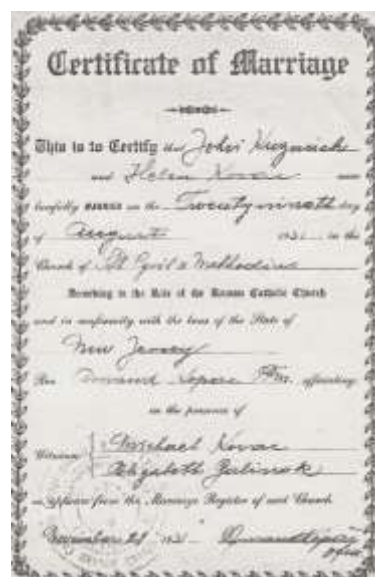 Certificate of Marriage
This is to Certify that John
and Helen Kovac were
lawfully MARRIED on the Twenty ninth day
of August 1931 in the
Church of St Cyril & Methodius
According to the Rite of the Roman Catholic Church
and in conformity with the laws of the State of
New Jersey
Rev. officiating
in the presence of
Witnesses Michael Kovac
Elizabeth
as appears from the Marriage Register of said Church.
November 1931